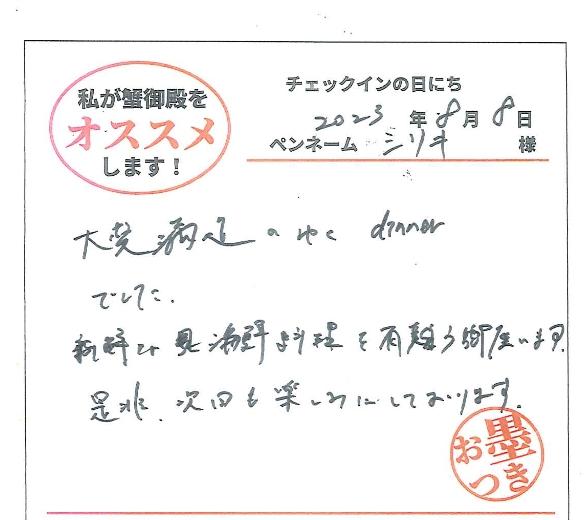 私が蟹御殿を
オススメ
します！
チェックインの日にち
2023年8月8日
ペンネーム シリキ 様
大変満足のゆく dinner
でした.
新鮮な 海鮮料理を有難う御座います.
是非、次回も楽しみにしております.
墨
お
つき